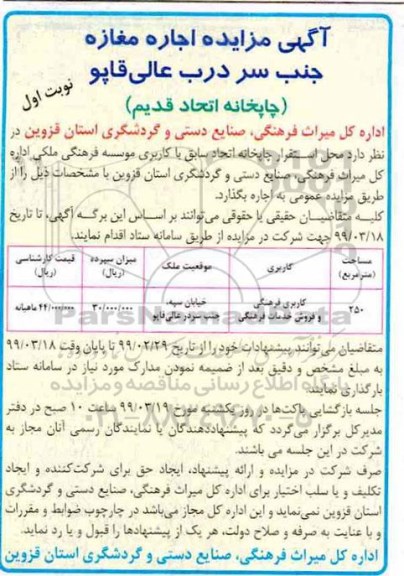 آگهی مزایده اجاره مغازه
جنب سر درب عالی‌قاپو
نوبت اول
(چاپخانه اتحاد قدیم)
اداره کل میراث فرهنگی، صنایع دستی و گردشگری استان قزوین در
نظر دارد محل استقرار چاپخانه اتحاد سابق با کاربری موسسه فرهنگی ملکی اداره
کل میراث فرهنگی، صنایع دستی و گردشگری استان قزوین با مشخصات ذیل را از
طریق مزایده عمومی به اجاره بگذارد.
کلیه متقاضیان حقیقی یا حقوقی می‌توانند بر اساس این برگه آگهی، تا تاریخ
۹۹/۰۳/۱۸ جهت شرکت در مزایده از طریق سامانه ستاد اقدام نمایند.
مساحت (مترمربع) کاربری موقعیت ملک میزان سپرده (ریال) قیمت کارشناسی (ریال)
۲۵۰ کاربری فرهنگی و فروش خدمات فرهنگی خیابان سپه، جنب سردر عالی‌قاپو ۳۰/۰۰۰/۰۰۰ ۴۴/۰۰۰/۰۰۰ ماهیانه
متقاضیان می‌توانند پیشنهادات خود را از تاریخ ۹۹/۰۲/۲۹ تا پایان وقت ۹۹/۰۳/۱۸
به مبلغ مشخص و دقیق بعد از ضمیمه نمودن مدارک مورد نیاز در سامانه ستاد
بارگذاری نمایند.
جلسه بازگشایی پاکت‌ها در روز یکشنبه مورخ ۹۹/۰۳/۱۹ ساعت ۱۰ صبح در دفتر
مدیرکل برگزار می‌گردد که پیشنهاددهندگان یا نمایندگان رسمی آنان مجاز به
شرکت در این جلسه می باشند.
صرف شرکت در مزایده و ارائه پیشنهاد، ایجاد حق برای شرکت‌کننده و ایجاد
تکلیف و یا سلب اختیار برای اداره کل میراث فرهنگی، صنایع دستی و گردشگری
استان قزوین نمی‌نماید و این اداره کل مجاز می‌باشد در چارچوب ضوابط و مقررات
و با عنایت به صرفه و صلاح دولت، هر یک از پیشنهادها را قبول و یا رد نماید.
اداره کل میراث فرهنگی، صنایع دستی و گردشگری استان قزوین